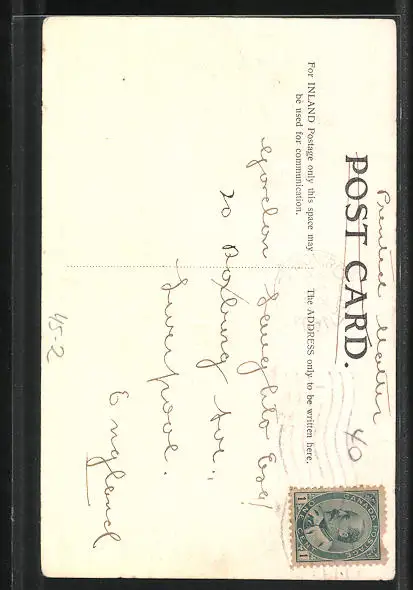 Printed Matter
POST CARD.
For INLAND Postage only this space may
be used for communication.
The ADDRESS only to be written here.
40
CANADA POSTAGE
1 ONE CENT 1
Gordon Esq/
20 Roxburg Ave.,
Liverpool.
England
45-2